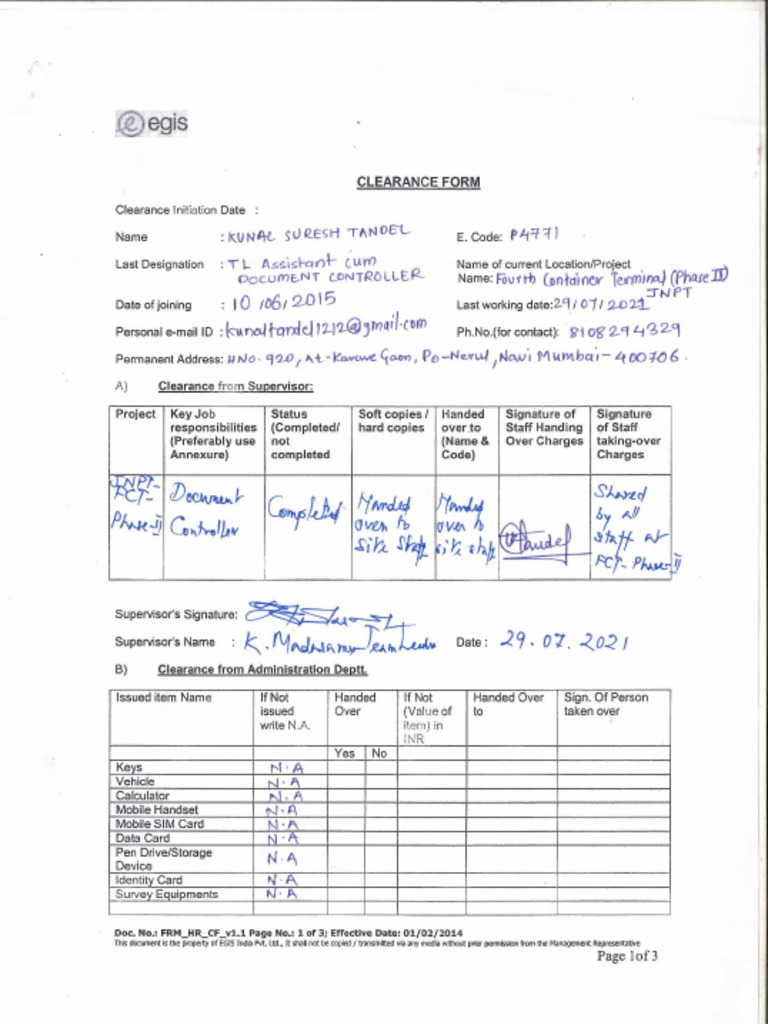 egis
CLEARANCE FORM
Clearance Initiation Date :
Name : KUNAL SURESH TANDEL E. Code: P4771
Last Designation : TL Assistant cum DOCUMENT CONTROLLER Name of current Location/Project Name: Fourth Container Terminal (Phase II) JNPT
Date of joining : 10/06/2015 Last working date: 29/07/2021
Personal e-mail ID : kunaltandel1212@gmail.com Ph.No.(for contact): 8108294329
Permanent Address: HNo. 920, At-Karave Gaon, Po-Nerul, Navi Mumbai - 400706.
A) Clearance from Supervisor:
Project Key Job responsibilities (Preferably use Annexure) Status (Completed/ not completed Soft copies / hard copies Handed over to (Name & Code) Signature of Staff Handing Over Charges Signature of Staff taking-over Charges
JNPT-FCT-Phase-II Document Controller Completed Handed over to site staff Handed over to site staff Tandel Shared by all staff at FCT-Phase-II
Supervisor's Signature:
Supervisor's Name : K. Team Leader Date : 29.07.2021
B) Clearance from Administration Deptt.
Issued item Name If Not issued write N.A. Handed Over If Not (Value of item) in INR Handed Over to Sign. Of Person taken over
Yes No
Keys N.A
Vehicle N.A
Calculator N.A
Mobile Handset N.A
Mobile SIM Card N.A
Data Card N.A
Pen Drive/Storage Device N.A
Identity Card N.A
Survey Equipments N.A
Doc. No.: FRM_HR_CF_v1.1 Page No.: 1 of 3; Effective Date: 01/02/2014
This document is the property of EGIS India Pvt. Ltd., it shall not be copied / transmitted via any media without prior permission from the Management Representative
Page 1of 3